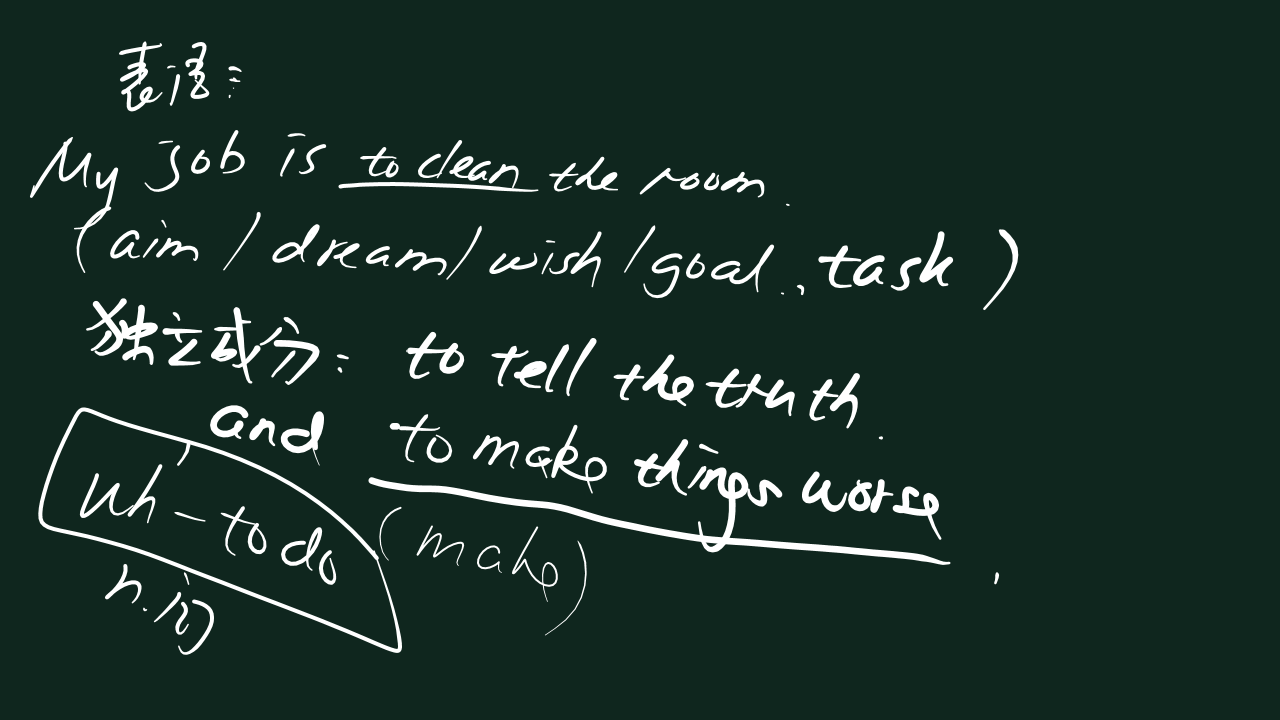 表语:
My job is to clean the room.
(aim / dream / wish / goal..., task)
独立成分: to tell the truth.
and to make things worse,
wh-to do (make)
n.词